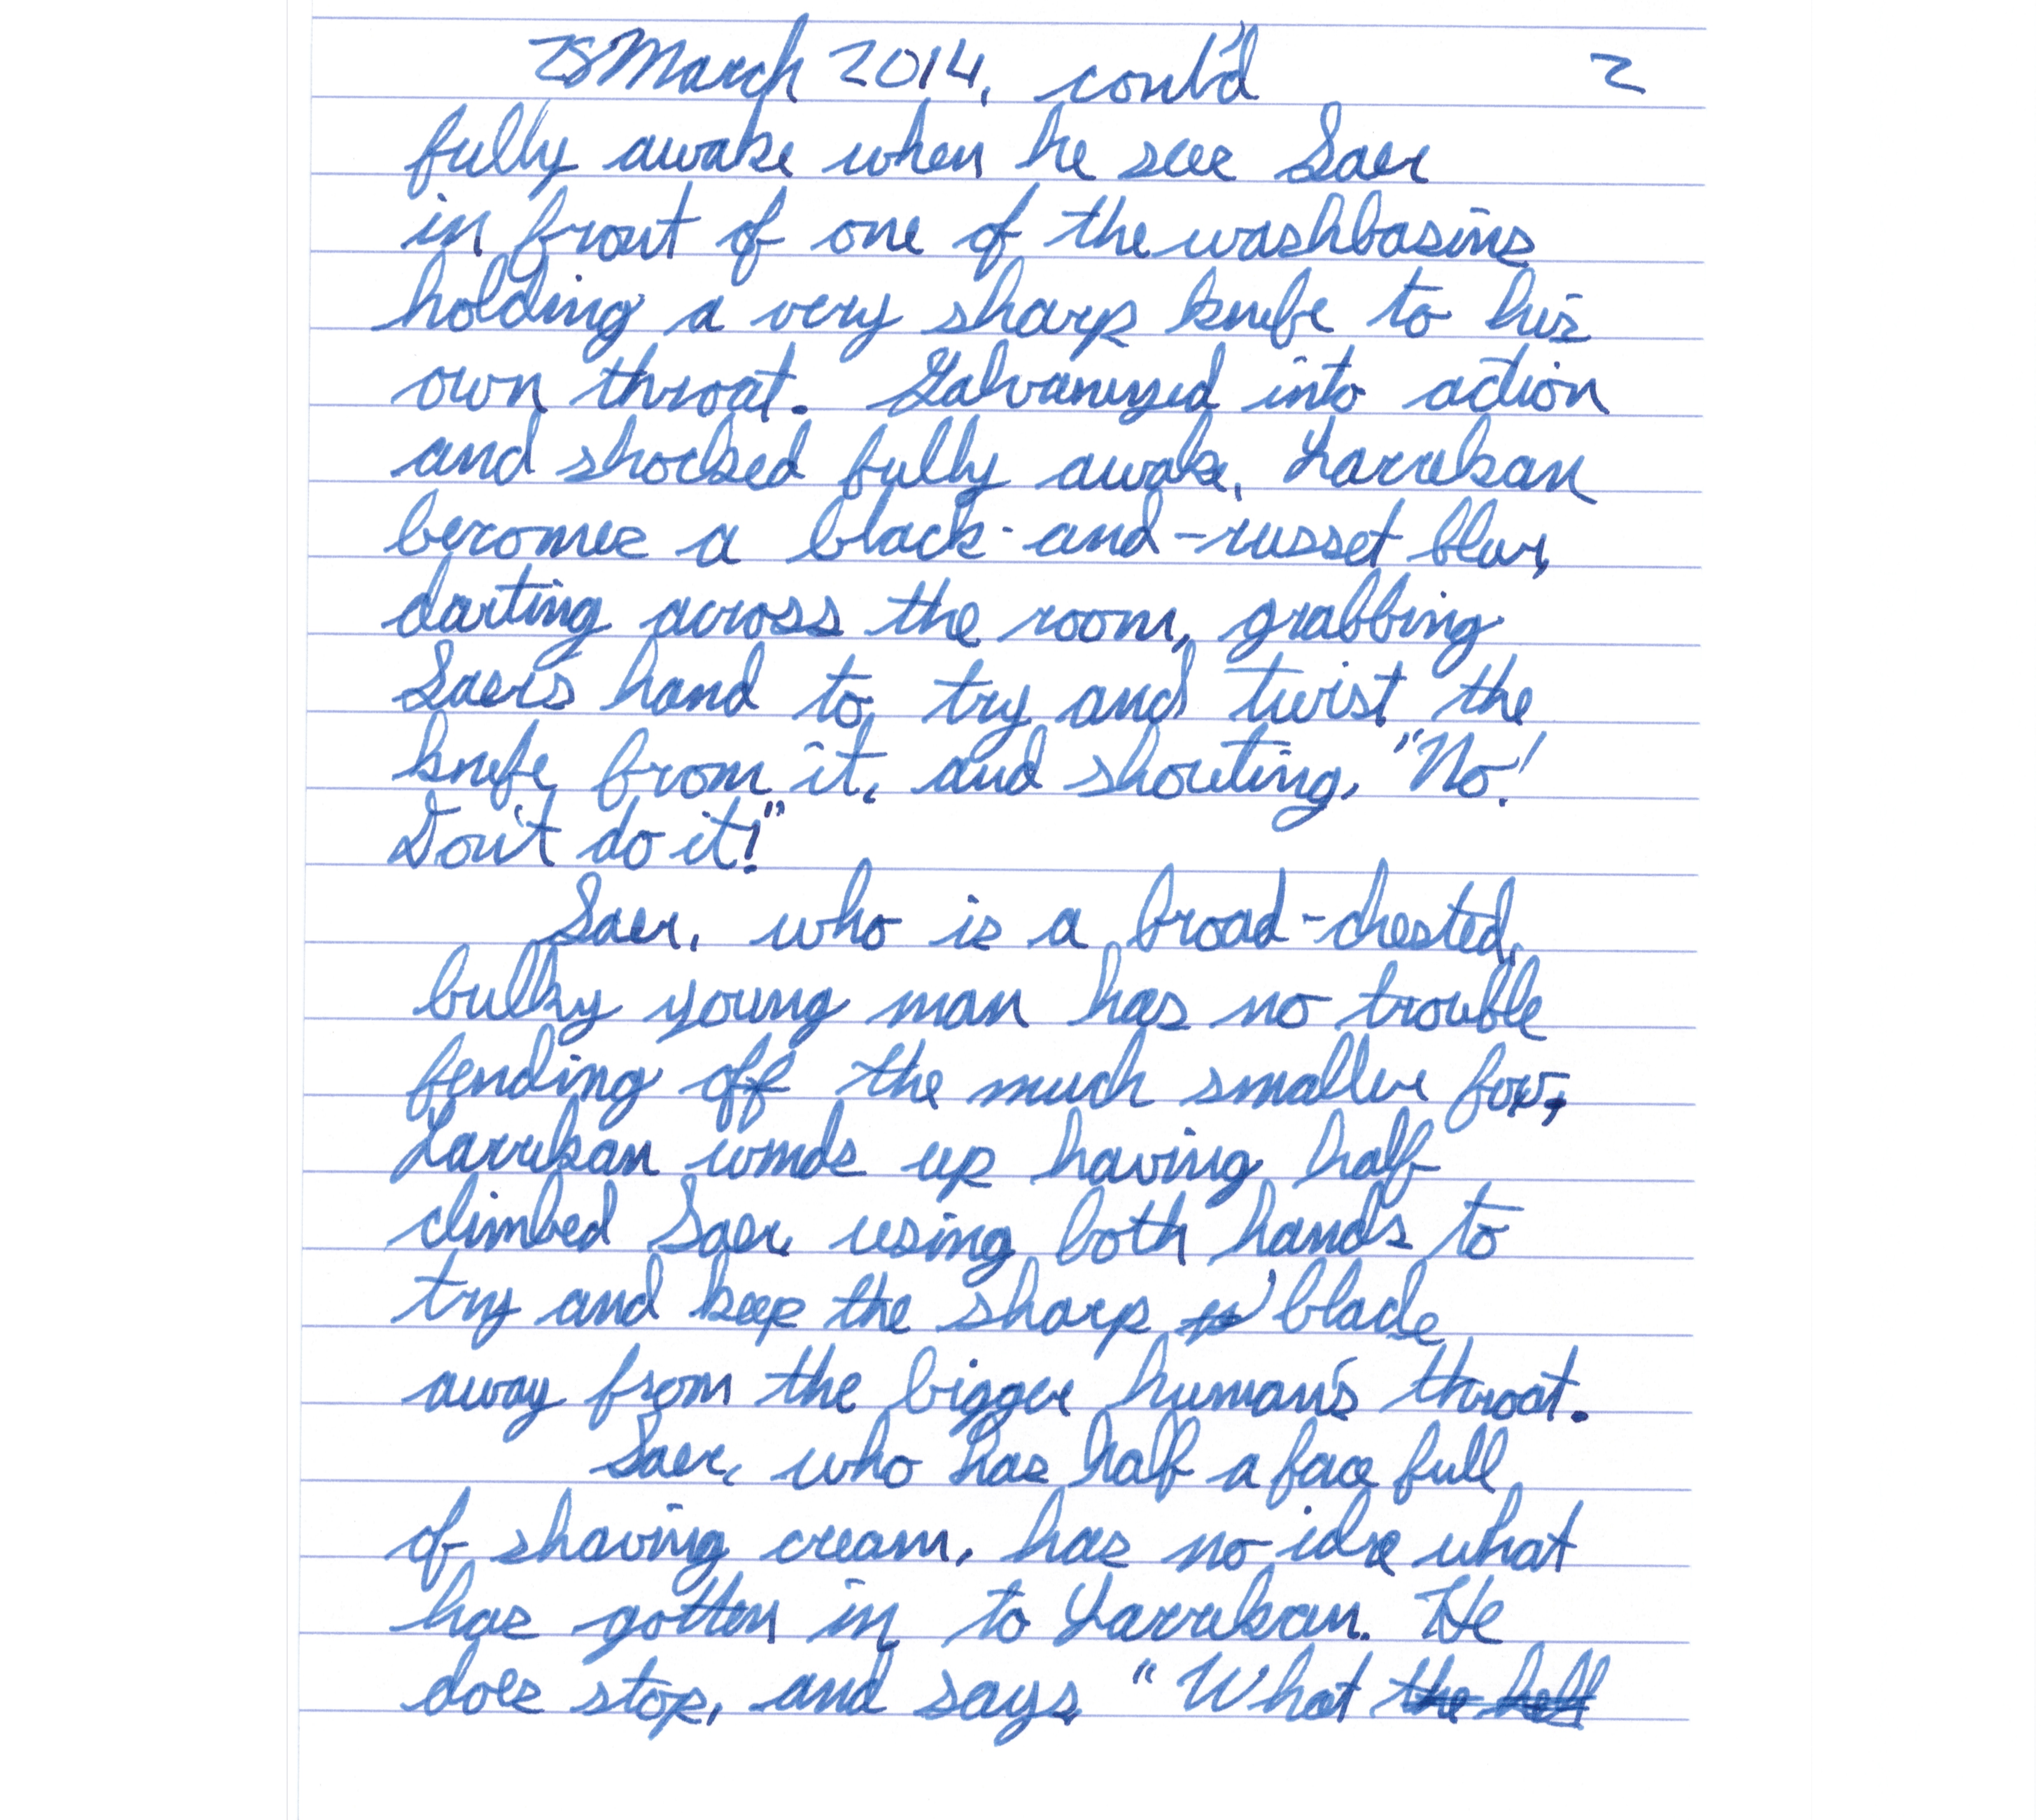 25 March 2014, cont'd 2
fully awake when he see Saer
in front of one of the washbasins
holding a very sharp knife to his
own throat. Galvanized into action
and shocked fully awake, Larrekan
becomes a black-and-russet blur,
darting across the room, grabbing
Saer's hand to try and twist the
knife from it, and shouting, "No!
Don't do it!"
Saer, who is a broad-chested,
bulky young man has no trouble
fending off the much smaller fox,
Larrekan winds up having half
climbed Saer using both hands to
try and keep the sharp blade
away from the bigger human's throat.
Saer, who has half a face full
of shaving cream, has no idea what
has gotten in to Larrekan. He
does stop, and says, "What the hell